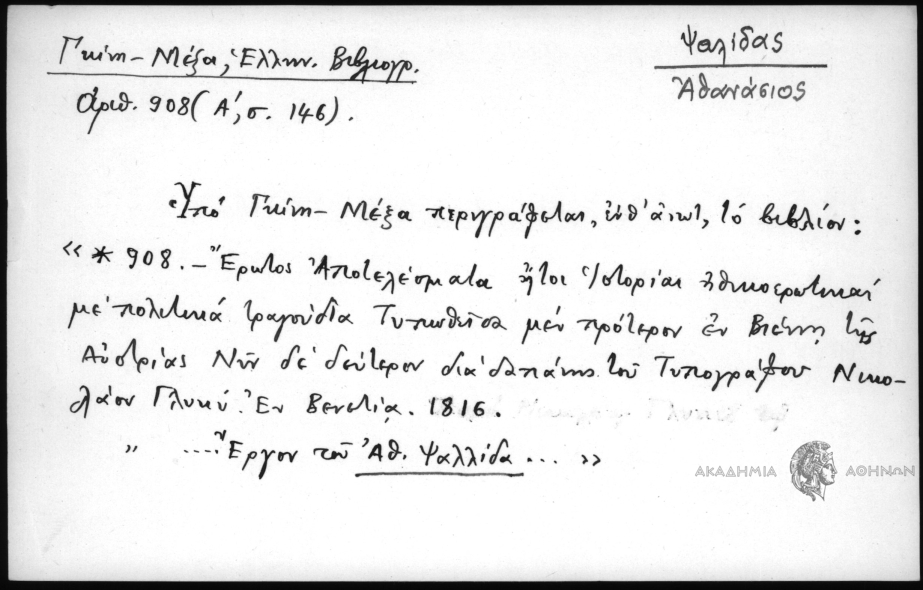 Γκίνη - Μέξα, Ἑλλην. Βιβλιογρ.
ἀριθ. 908 (Α', σ. 146).
Ψαλίδας
Ἀθανάσιος
Ὑπό Γκίνη - Μέξα περιγράφεται, ἐνθ' ἀνωτ, τό βιβλίον:
«* 908. - Ἔρωτος Ἀποτελέσματα ἤτοι Ἱστορίαι ἠθικοερωτικαί
μέ πολιτικά τραγούδια Τυπωθεῖσα μέν πρότερον ἐν Βιέννῃ τῆς
Αὐστρίας Νῦν δέ δεύτερον διά δαπάνης τοῦ Τυπογράφου Νικο-
λάου Γλυκύ. Ἐν Βενετίᾳ. 1816.
" .... Ἔργον τοῦ Ἀθ. Ψαλλίδα ... »
ΑΚΑΔΗΜΙΑ ΑΘΗΝΩΝ